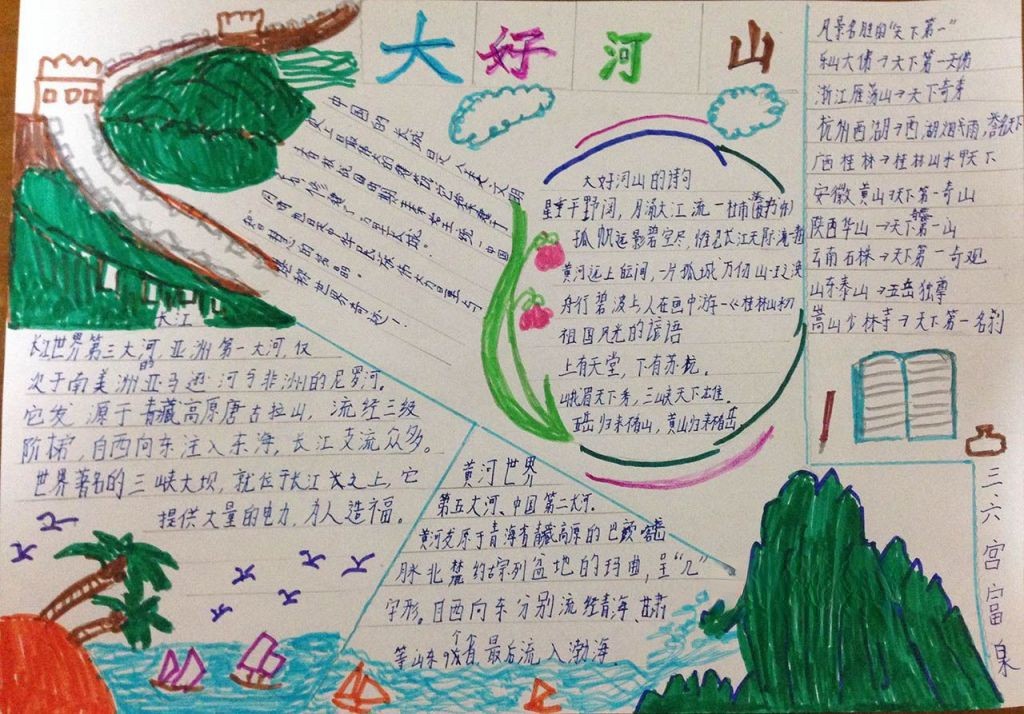 大好河山
中国的长城是人类文明
史上最伟大的建筑
有修筑了万里长城。
长江
长江世界第三大河,亚洲第一大河,仅
次于南美洲的亚马逊河与非洲的尼罗河。
它发源于青藏高原唐古拉山,流经三级
阶梯,自西向东注入东海,长江支流众多。
世界著名的三峡大坝,就位于长江之上,它
提供大量的电力,为人造福。
大好河山的诗句
星垂平野阔,月涌大江流-杜甫
孤帆远影碧空尽,惟见长江天际流
黄河远上白云间,一片孤城万仞山-王之涣
舟行碧波上人在画中游-《桂林山
祖国风光的谚语
上有天堂,下有苏杭。
峨眉天下秀,三峡天下雄。
五岳归来不看山,黄山归来不看岳
风景名胜的“天下第一”
乐山大佛→天下第一大佛
浙江雁荡山→天下奇秀
杭州西湖→西湖烟雨,誉
广西桂林→桂林山水甲天下
安徽黄山→天下第一奇山
陕西华山→天下第一山
云南石林→天下第一奇观
山东泰山→五岳独尊
嵩山少林寺→天下第一名刹
黄河世界
第五大河、中国第二大河。
黄河发原于青海省青藏高原的巴颜喀
脉北麓约古宗列盆地的玛曲,呈“几”
字形。自西向东分别流经青海、甘肃
等山东9个省最后流入渤海.
三六宫富泉